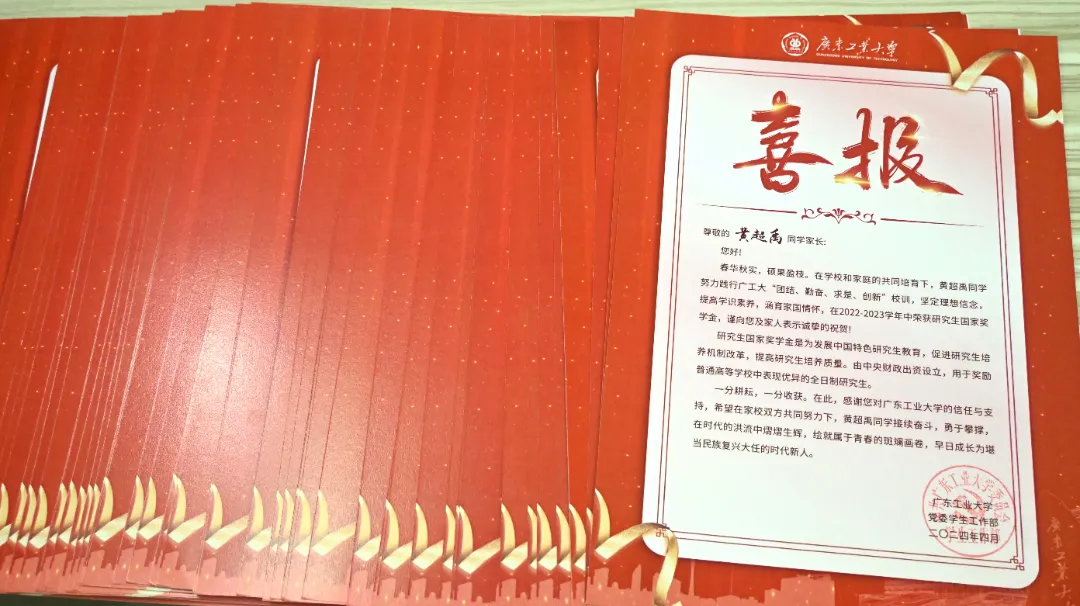 广东工业大学
GUANGDONG UNIVERSITY OF TECHNOLOGY
喜报
尊敬的 黄超禹 同学家长:
您好!
春华秋实，硕果盈枝。在学校和家庭的共同培育下，黄超禹同学
努力践行广工大“团结、勤奋、求是、创新”校训，坚定理想信念，
提高学识素养，涵育家国情怀，在2022-2023学年中荣获研究生国家奖
学金，谨向您及家人表示诚挚的祝贺!
研究生国家奖学金是为发展中国特色研究生教育，促进研究生培
养机制改革，提高研究生培养质量。由中央财政出资设立，用于奖励
普通高等学校中表现优异的全日制研究生。
一分耕耘，一分收获。在此，感谢您对广东工业大学的信任与支
持，希望在家校双方共同努力下，黄超禹同学接续奋斗，勇于攀撑，
在时代的洪流中熠熠生辉，绘就属于青春的斑斓画卷，早日成长为堪
当民族复兴大任的时代新人。
广东工业大学
党委学生工作部
二〇二四年四月